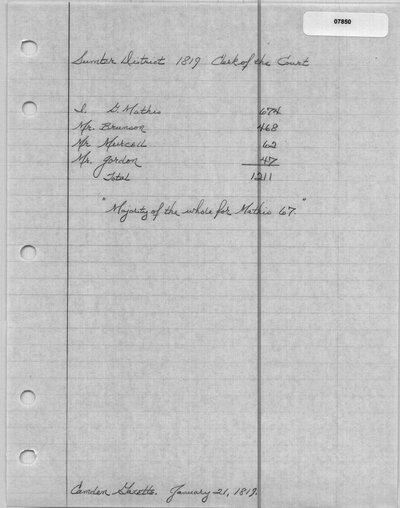 07850
Sumter District 1819 Clerk of the Court
I. G. Mathis 674
Mr. Brunson 468
Mr 62
Mr. Gordon 47
Total 1211
"Majority of the whole for Mathis 67."
Camden Gazette. January 21, 1819.